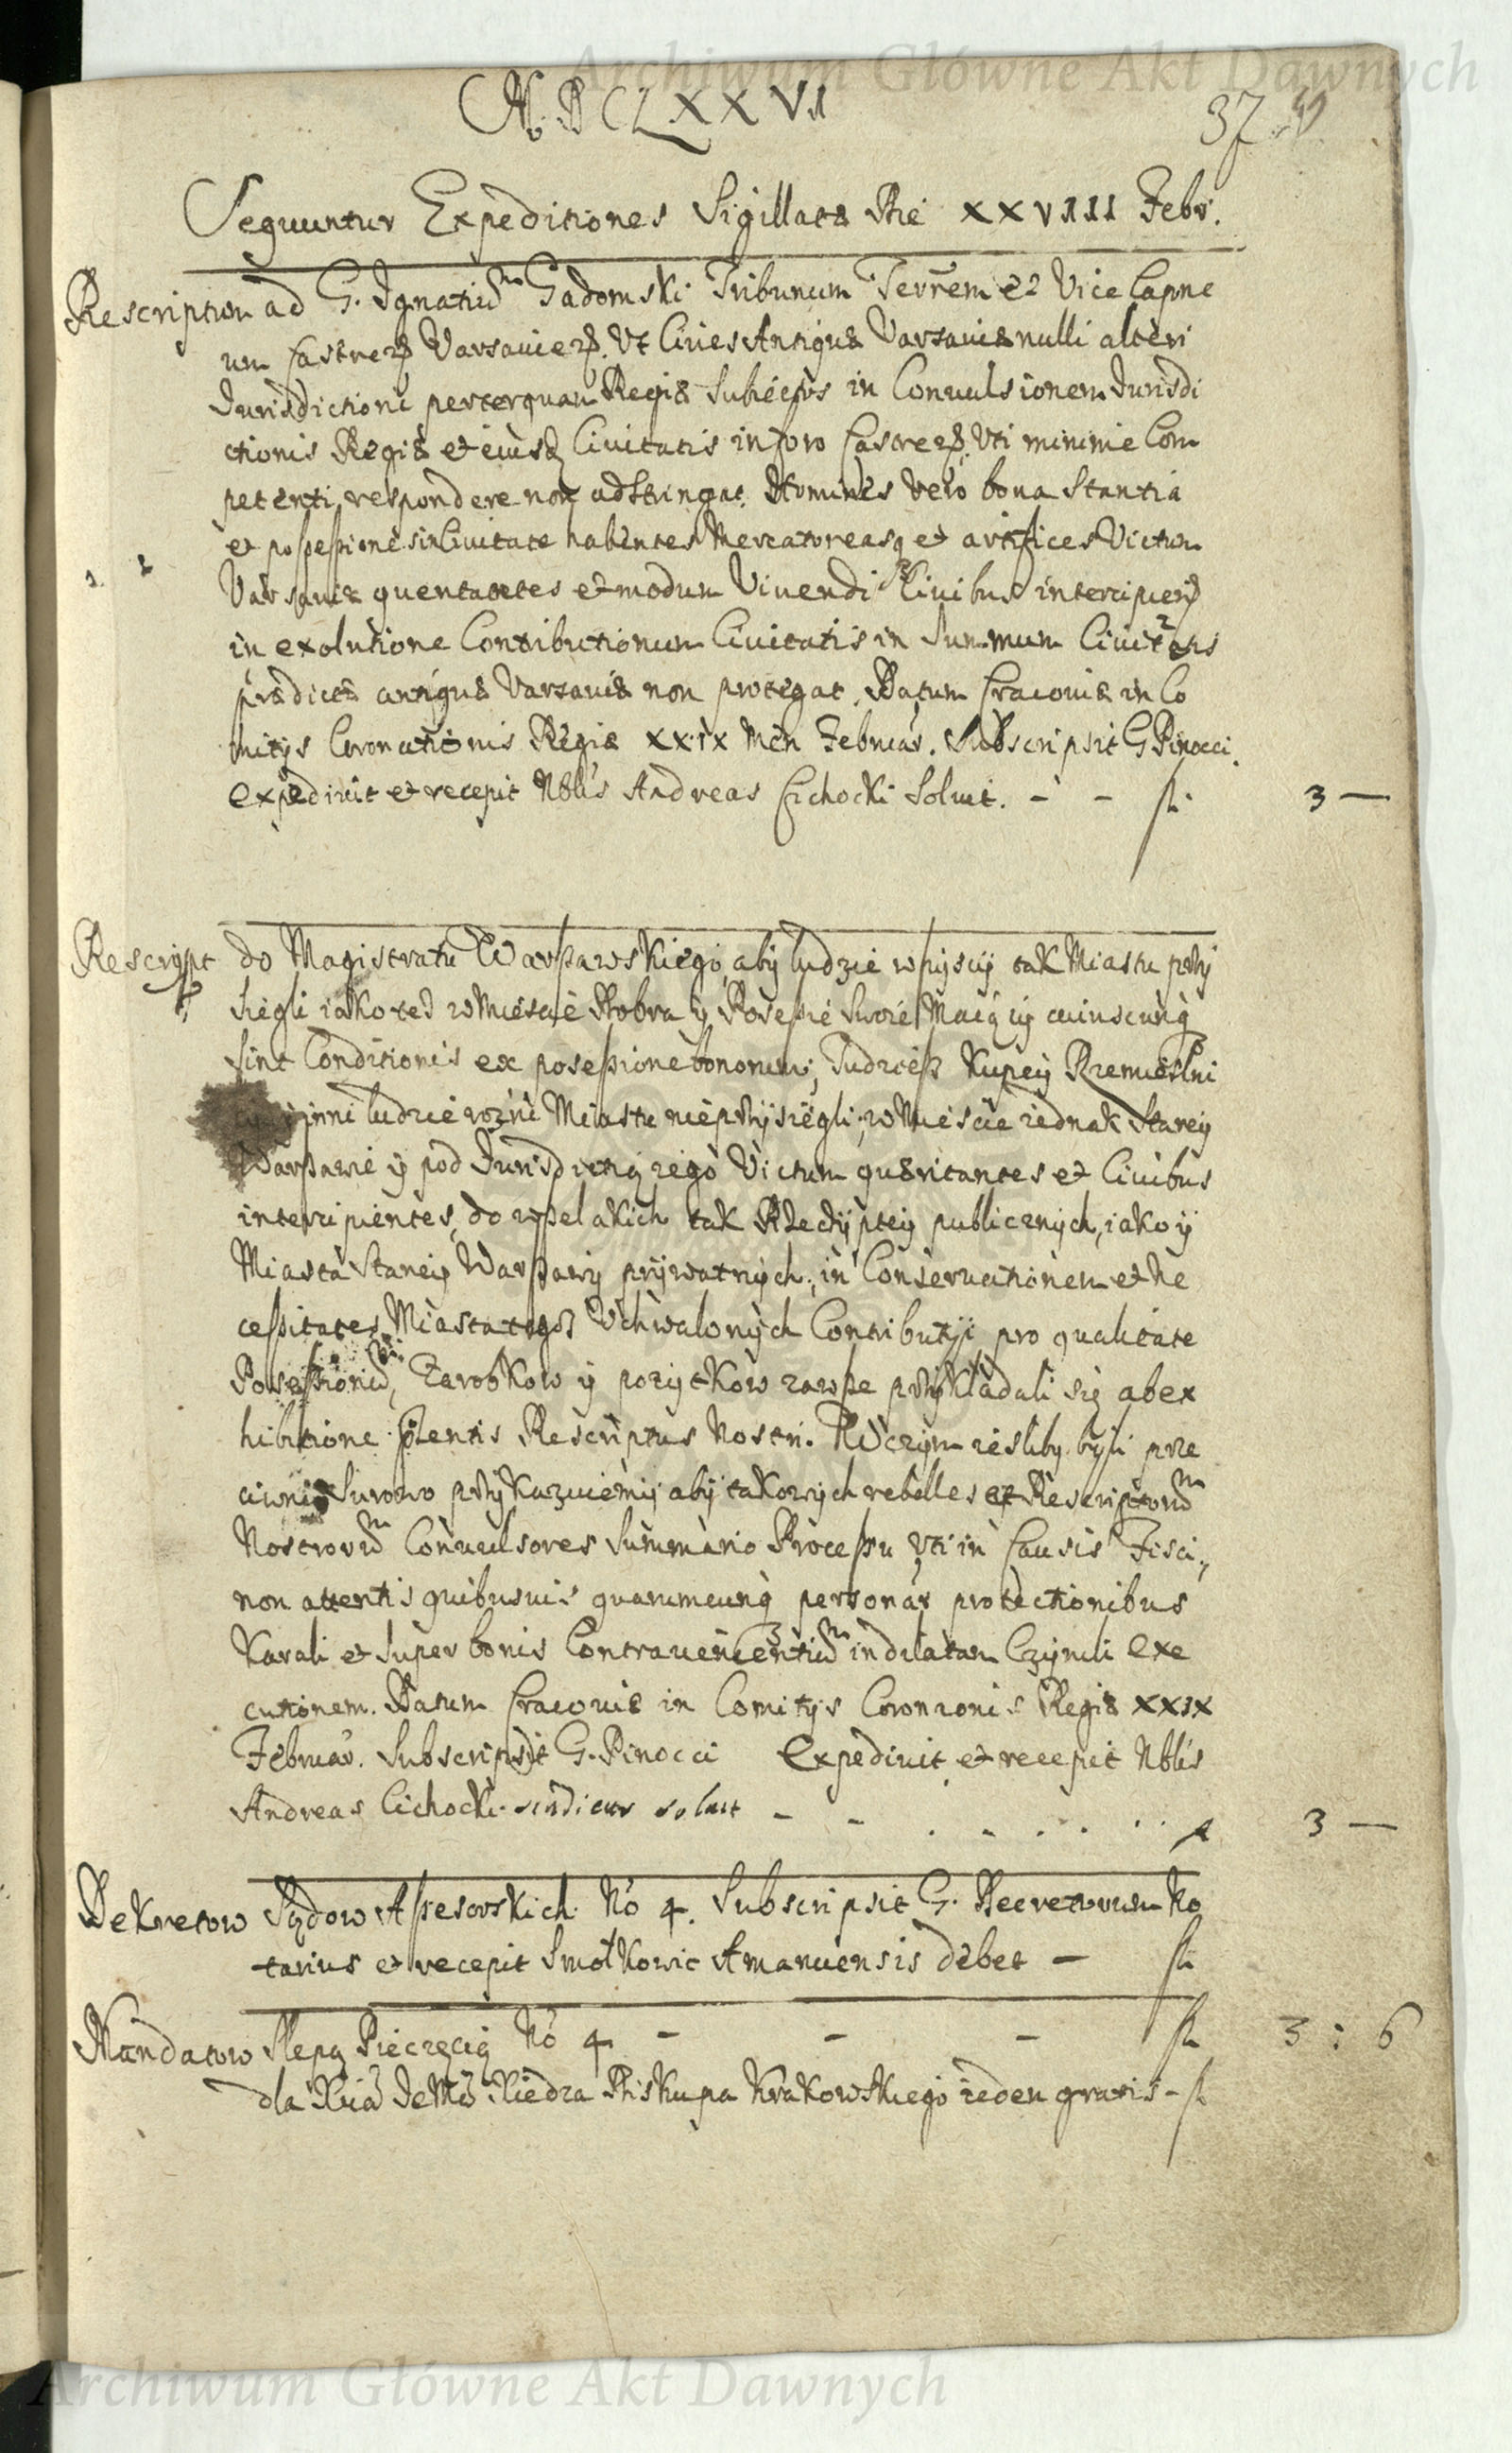 Archiwum Główne Akt Dawnych
MDCLXXVI
37
Sequuntur Expeditiones Sigillatæ Die XXVIII Febr.
Rescriptum ad G. Ignatiu͠m Gadomski Tribunum Terrem et Vice Capne
um Castren Varsavien. Ut Cives Antiquæ Varsaviæ nulli alteri
Jurisdictioni preterquam Regiæ Subiectos in Convulsionem Jurisdi
ctionis Regiæ et eiusd Civitatis in foro Castren. Uti minime Com
petenti respondere non adstringat. Homines vero bona Stantia
et possessiones in Civitate habentes Mercatores asq et artifices Victum
Varsaviæ queritantes et modum Vivendi Civibus intercipien
in exolutione Contributionum Civitatis in Summum Civitatis
prædictæ antiquæ Varsaviæ non protegat. Datum Cracoviæ in Co
mitijs Coronationis Regiæ XXIX Men Februar. Subscripsit G Pinocci.
expedivit et recepit Nblis Andreas Cichocki Solvit. - - fl. 3 —
Rescrypt do Magistratu Warszawskiego, aby ludzie wszyscy tak Miastu przy
siegli iako też w Miescie Dobra y Possessie Swoie Maiący cuiuscunq
sint Conditionis ex possessione bonorum, Tudzież Kupcy Rzemieslni
cy y inni ludzie rożni Miastu nieprzysiegli, w Miescie iednak Starey
Warszawie y pod Jurisdictią iego Victum quæritantes et Civibus
intercipientes, do wszelakich tak Rzeczyptey publicznych, iako y
Miasta Starey Warszawy prywatnych, in Conservationem et Ne
cessitates Miasta tegoż Uchwalonych Contributyi pro qualitate
Possessionu͠, Zarobkow y pożytkow zawsze przykładali się ab ex
hibitione pntis Rescriptus Nostri. W czym iesliby byli prze
ciwni Surowo przykazuiemy aby takowych rebelles et Rescriptoru͠m
Nostroru͠m Convulsores Summario Processu uti in Causis Fisci,
non attentis quibusvis quarumcunq personar protectionibus
Karali et super bonis Contravenientiu͠m indilatam Czynili Exe
cutionem. Datum Cracoviæ in Comitijs Coronaonis Regiæ XXIX
Februar. Subscripsit G. Pinocci Expedivit et recepit Nblis
Andreas Cichocki sindicus solvit - - . - . . . . fl 3 —
Dekretow Sądow Assesorskich No 4. Subscripsit G. Decretorum No
tarius et recepit Smotkowic Amanuensis debet — fl
Mandatow Slepą Pieczęcią No 4 - - - fl 3 : 6
dla Xcia JeMci Xiedza Biskupa Krakowskiego ieden gratis - fl
Archiwum Główne Akt Dawnych